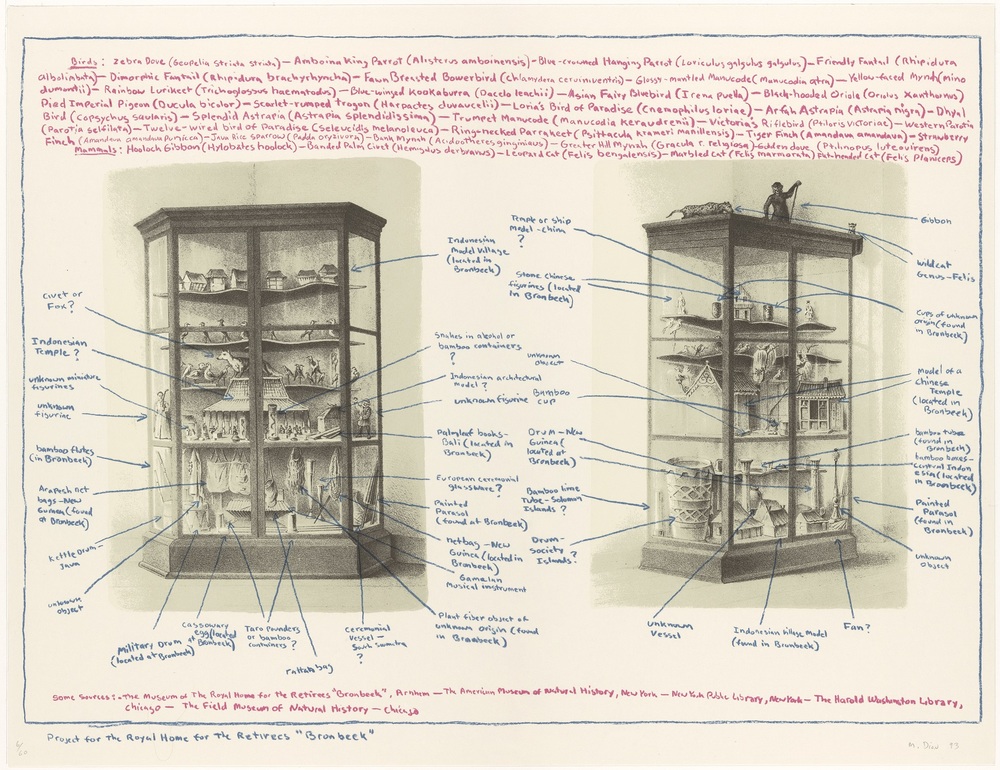 Birds: Zebra Dove (Geopelia Striata striata) — Amboina King Parrot (Alisterus amboinensis) - Blue-crowned Hanging Parrot (Loriculus galgulus galgulus) — Friendly Fantail (Rhipidura
albolimbata) — Dimorphic Fantail (Rhipidura brachyrhyncha) — Fawn Breasted Bowerbird (Chlamydera cerviniventris) — Glossy-mantled Manucode (Manucodia atra) — Yellow-faced Mynah (mino
dumontii) — Rainbow Lorikeet (Trichoglossus haematodus) — Blue-winged Kookaburra (Dacelo leachii) — Asian Fairy Bluebird (Irena puella) — Black-hooded Oriole (Oriolus Xanthornus)
Pied Imperial Pigeon (Ducula bicolor) — Scarlet-rumped trogon (Harpactes duvaucelii) — Loria's Bird of Paradise (Cnemophilus loriae) — Arfak Astrapia (Astrapia nigra) — Dhyal
Bird (Copsychus saularis) — Splendid Astrapia (Astrapia Splendidissima) — Trumpet Manucode (Manucodia Keraudrenii) — Victoria's Riflebird (Ptiloris Victoriae) — Western Parotia
(Parotia sefilata) — Twelve-wired bird of Paradise (Seleucidis melanoleuca) — Ring-necked Parrakeet (Psittacula krameri manillensis) — Tiger Finch (Amandava amandava) — Strawberry
Finch (Amandava amandava punicea) — Java Rice sparrow (Padda oryzivora) — Bank Mynah (Acidotheres ginginianus) — Greater Hill Mynah (Gracula r. religiosa) - Golden dove (Ptilinopus luteovirens)
Mammals: Hoolock Gibbon (Hylobates hoolock) — Banded Palm Civet (Hemigalus derbyanus) — Leopard Cat (Felis bengalensis) — Marbled cat (Felis marmorata) Flat-headed cat (Felis Planiceps)
Civet or
Fox?
Indonesian
Temple?
unknown miniature
figurines
unknown
figurine
bamboo flutes
(in Bronbeek)
Arapesh net
bags — New
Guinea (found
at Bronbeek)
Kettledrum —
Java
unknown
object
Military Drum
(located at Bronbeek)
cassowary
egg (located
at Bronbeek)
Taro pounders
or bamboo
containers?
rattan bag
Ceremonial
Vessel —
South Sumatra
?
Indonesian
Model Village
(located in
Bronbeek)
Snakes in alcohol or
bamboo containers
?
Indonesian architectural
model?
unknown figurine
palmleaf books —
Bali (located in
Bronbeek)
European ceremonial
glassware?
Painted
Parasol
(found at Bronbeek)
netbag — New
Guinea (located in
Bronbeek)
Gamelan
Musical instrument
Plant fiber object of
unknown origin (found
in Bronbeek)
Temple or ship
model - China
?
Stone Chinese
figurines (located
in Bronbeek)
unknown
object
Bamboo
cup
Drum — New
Guinea (
located at
Bronbeek)
Bamboo lime
Tube - Solomon
Islands?
Drum —
Society
Islands?
Gibbon
wildcat
Genus - Felis
Cups of unknown
origin (found
in Bronbeek)
Model of a
Chinese
Temple
(located in
Bronbeek)
bamboo tubes
(found in
Bronbeek)
bamboo boxes —
Central Indon
esia (located
in Bronbeek)
Painted
Parasol
(found in
Bronbeek)
unknown
object
unknown
Vessel
Indonesian village Model
(found in Bronbeek)
Fan?
Some sources: — The Museum of The Royal Home for the Retirees "Bronbeek", Arnhem — The American Museum of Natural History, New York — New York Public Library, New York — The Harold Washington Library,
Chicago — The Field Museum of Natural History — Chicago
Project for the Royal Home for the Retirees "Bronbeek"
M. Dion 93